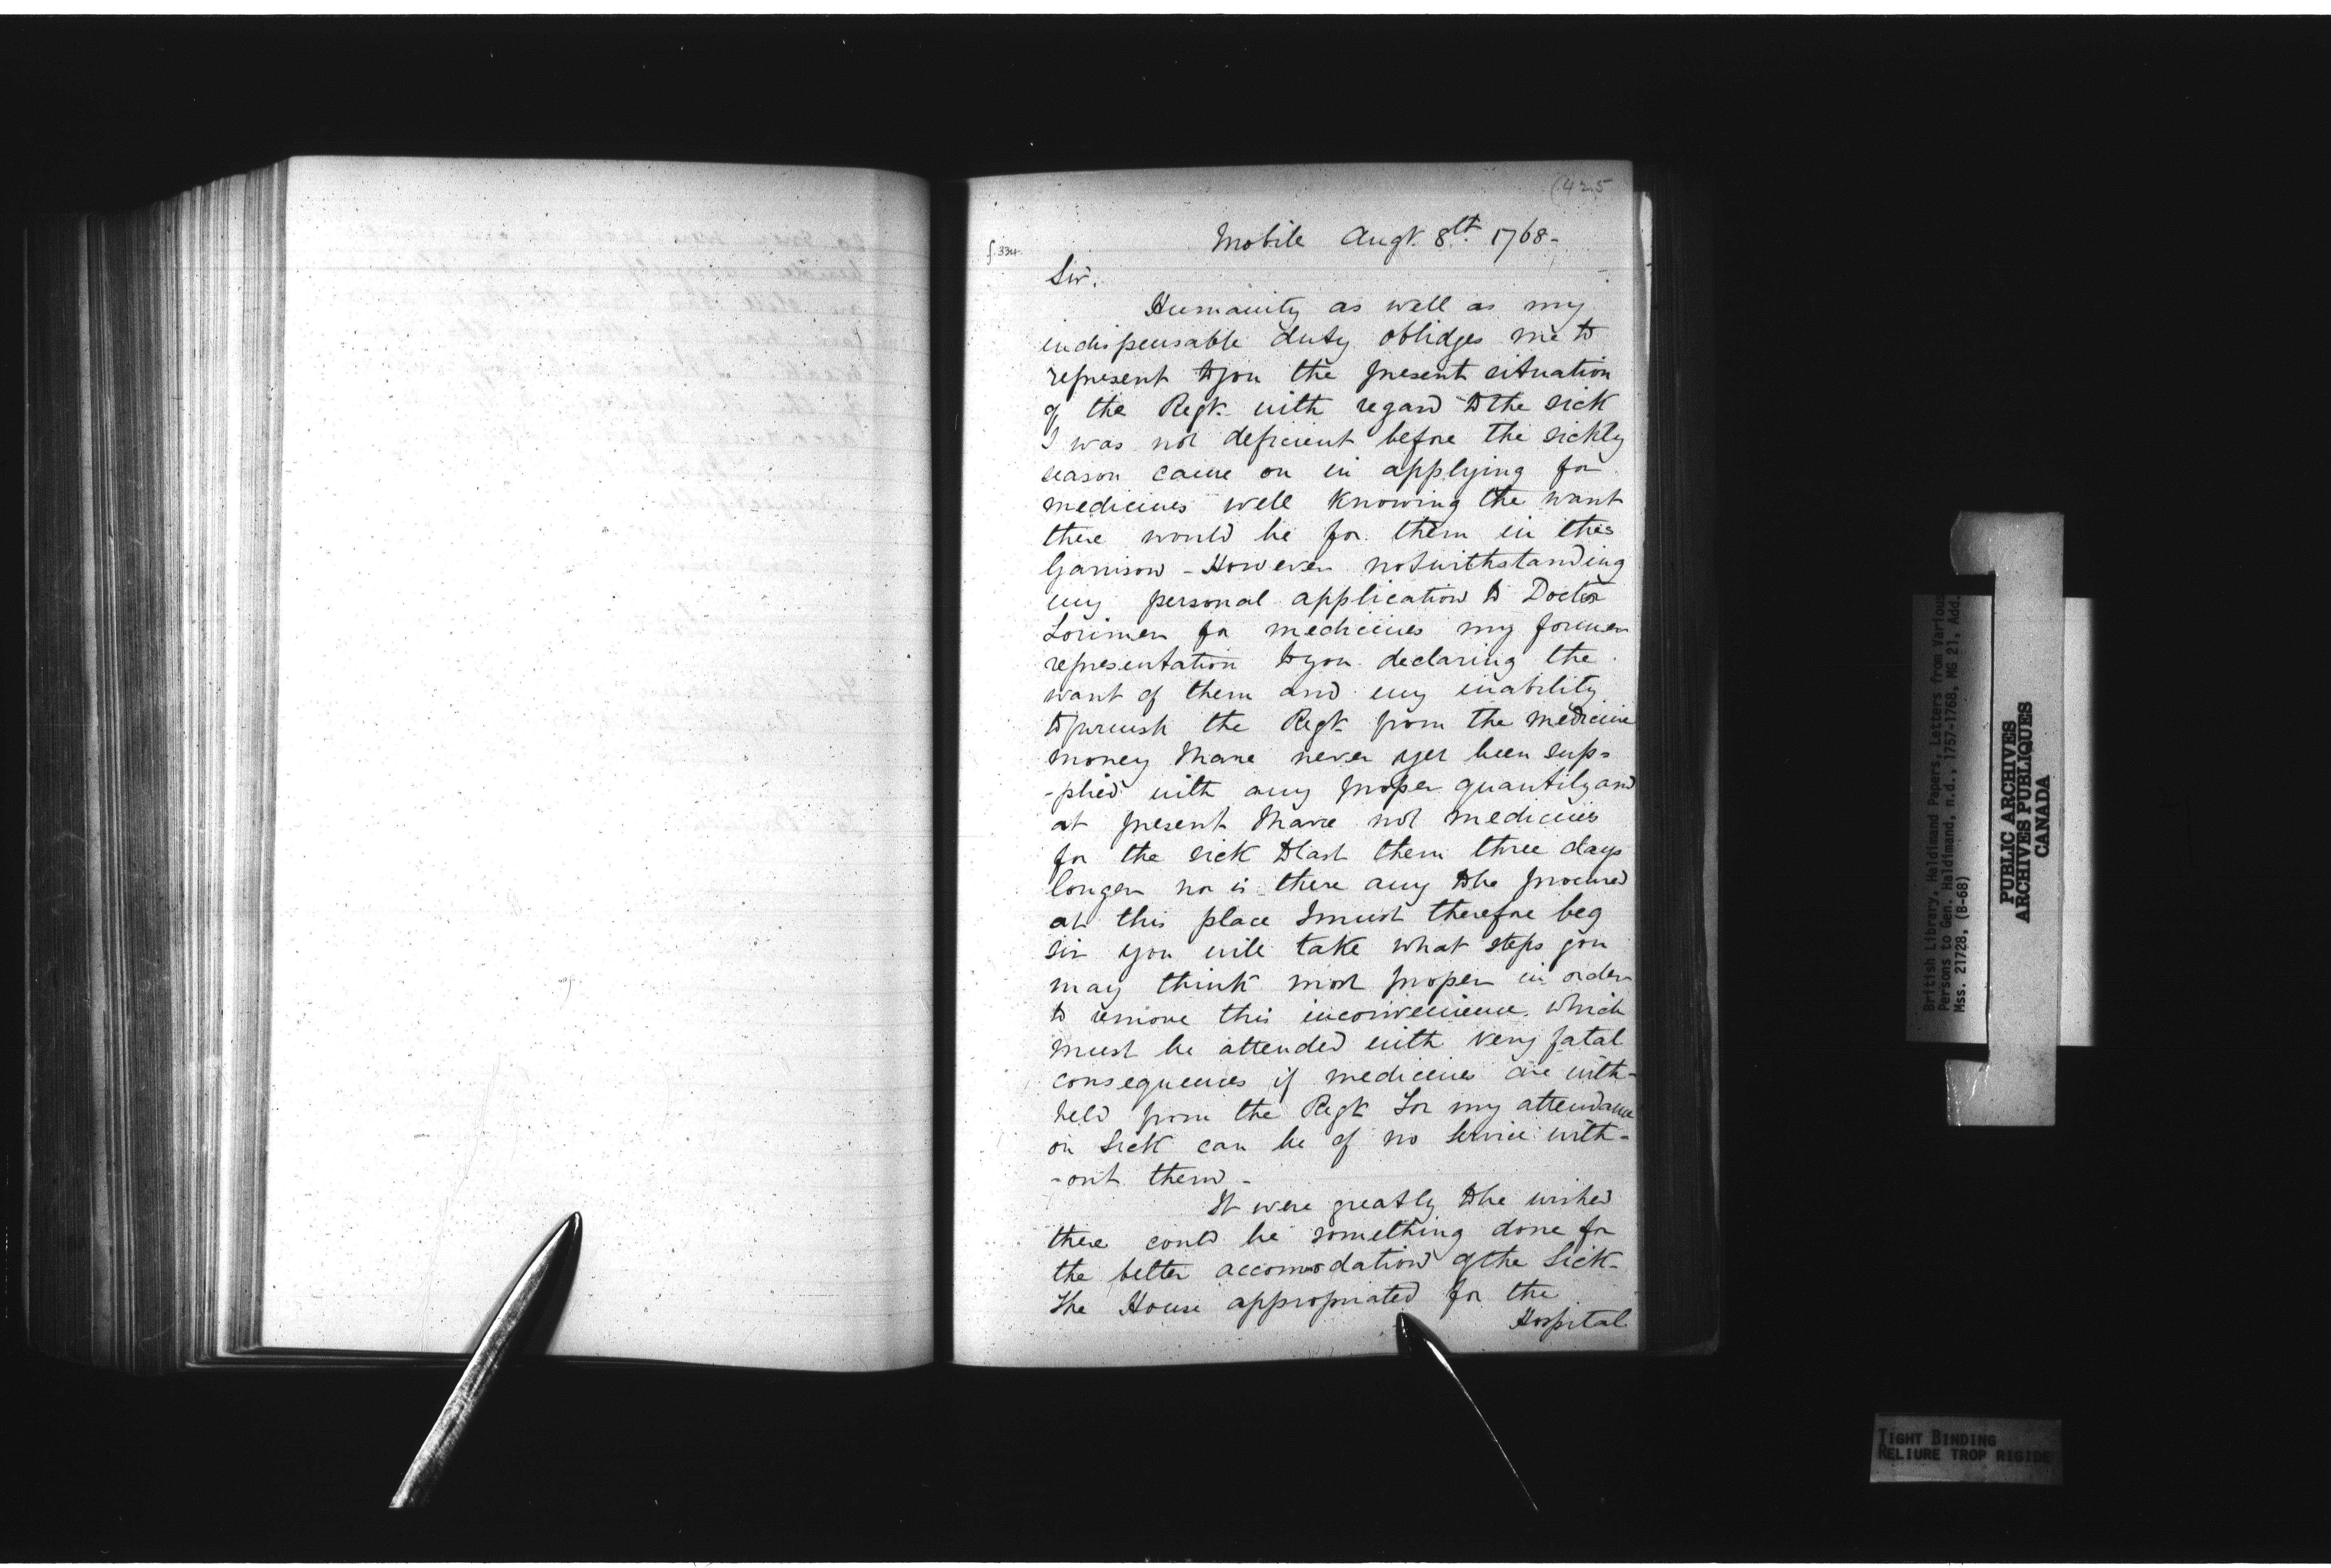 (425
f.334.
Mobile Augt. 8th. 1768-
Sir.
Humanity as well as my
indispensable duty oblidges me to
represent to you the present situation
of the Regt. with regard to the sick
I was not deficient before the sickly
season came on in applying for
medicines well knowing the want
there would be for them in this
Garrison - However notwithstanding
my personal application to Doctor
Lorimer for medicines my former
representation to you declaring the
want of them and my inability
to furnish the Regt. from the medicine
money I have never yet been sup-
-plied with any proper quantity and
at present I have not medicines
for the sick to last them three days
longer nor is there any to be procured
at this place I must therefore beg
sir you will take what steps you
may think most proper in order
to remove this inconvenience which
must be attended with very fatal
consequences if medicines are with-
held from the Regt for my attendance
on Sick can be of no service with-
-out them -
It were greatly to be wished
there could be something done for
the better accommodation of the Sick-
The House appropriated for the
Hospital
British Library, Haldimand Papers, Letters from Various
Persons to Gen. Haldimand, n.d., 1757-1768, MG 21, Add.
Mss. 21728, (B-68)
PUBLIC ARCHIVES
ARCHIVES PUBLIQUES
CANADA
TIGHT BINDING
RELIURE TROP RIGIDE